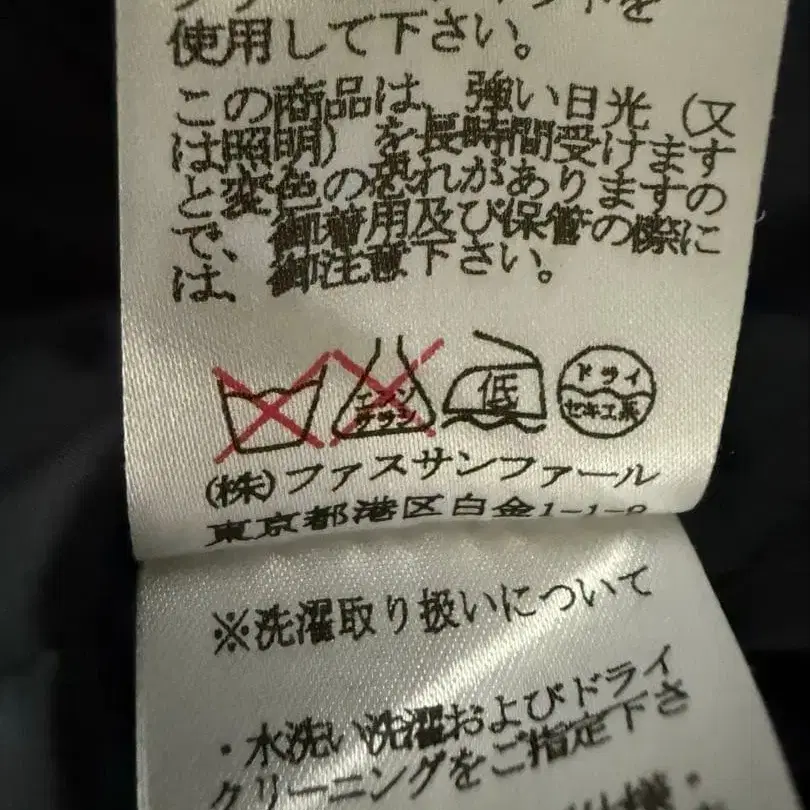 使用して下さい。
この商品は、強い日光（又
は照明）を長時間受けます
と変色の恐れがありますの
で、御着用及び保管の際に
は、御注意下さい。
エンソ
サラシ
低
ドライ
セキユ系
(株)ファスサンファール
東京都港区白金1-1-
※洗濯取り扱いについて
・水洗い洗濯およびドライ
クリーニングをご指定下さ